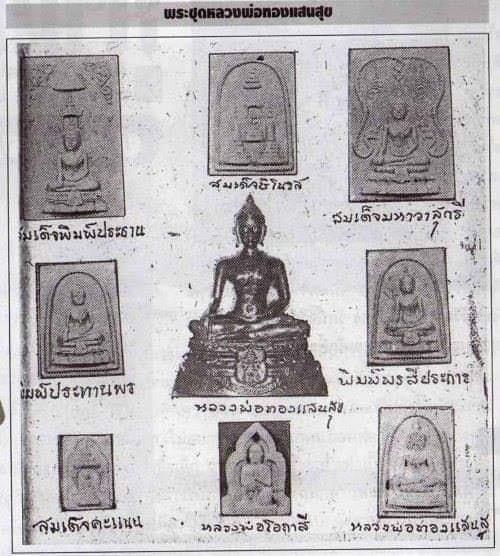 พระชุดหลวงพ่อทองแสนสุข
สมเด็จ
สมเด็จมหาวาสุกรี
สมเด็จพิมพ์ประธาน
พิมพ์ประทานพร
พิมพ์พรสี่ประการ
หลวงพ่อทองแสนสุข
สมเด็จคะแนน
หลวงพ่อโอภาสี
หลวงพ่อทองแสนสุ